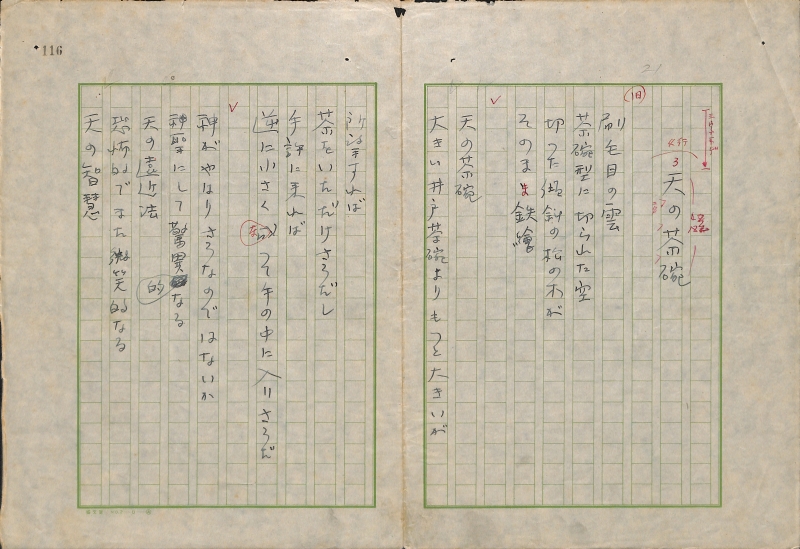 116
21
3 天の茶碗
旧
刷毛目の雲
茶碗型に切られた空
切つた傾斜の松の木が
そのまま鉄繪
天の茶碗
大きい井戸茶碗よりもつと大きいが
所望すれば
茶をいただけさうだし
手許に来れば
逆に小さくなつて手の中に入りさうだ
神がやはりさうなのではないか
神聖にして驚異的なる
天の遠近法
恐怖的でまた微笑的なる
天の智慧